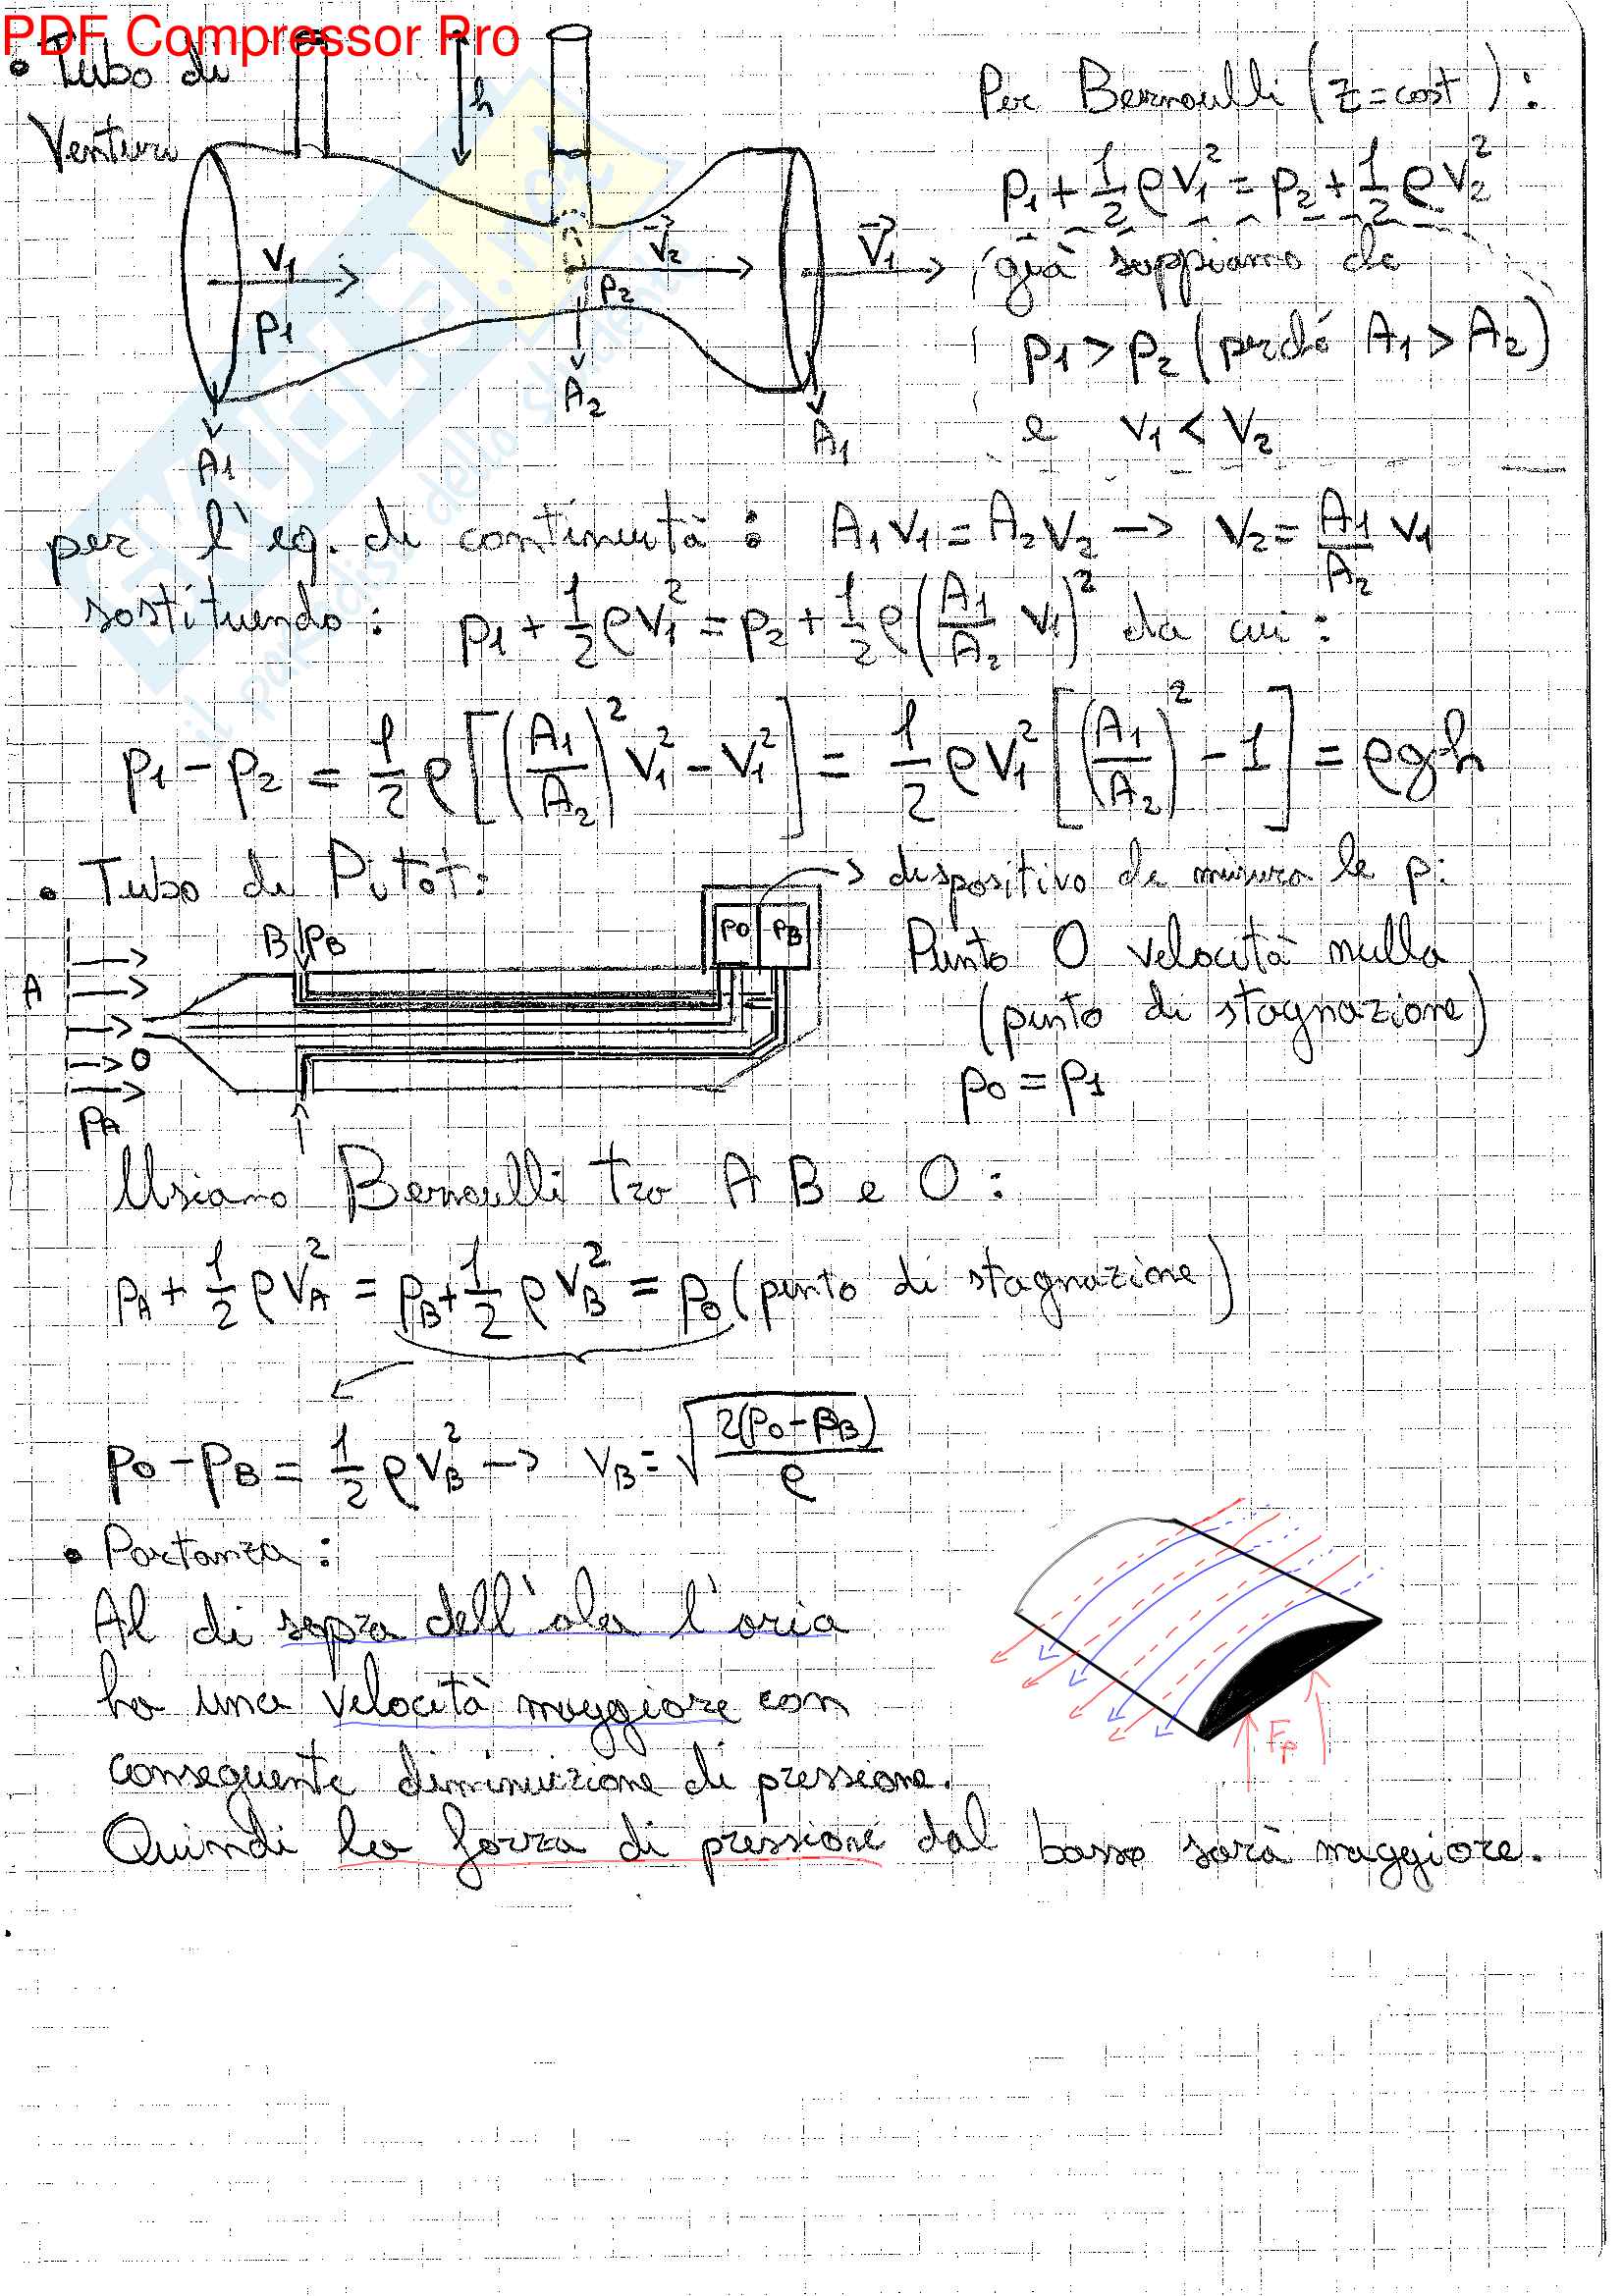 PDF Compressor Pro
• Tubo di
Venturi
h
v₁
p₁
A₁
v₂
p₂
A₂
v₁
A₁
Per Bernoulli (z=cost):
p₁ + 1/2 ρv₁² = p₂ + 1/2 ρv₂²
già sappiamo che
p₁ > p₂ (perché A₁ > A₂)
e v₁ < v₂
per l'eq. di continuità: A₁v₁ = A₂v₂ → v₂ = A₁/A₂ v₁
sostituendo: p₁ + 1/2 ρv₁² = p₂ + 1/2 ρ(A₁/A₂ v₁)² da cui:
p₁ - p₂ = 1/2 ρ[(A₁/A₂)² v₁² - v₁²] = 1/2 ρv₁² [(A₁/A₂)² - 1] = ρgh
• Tubo di Pitot:
→ dispositivo di misura le p:
A
B
pB
p0
pB
0
pA
Punto O velocità nulla
(punto di stagnazione)
p0 = p1
Usiamo Bernoulli tra A B e O:
pA + 1/2 ρvA² = pB + 1/2 ρvB² = p0 (punto di stagnazione)
p0 - pB = 1/2 ρvB² → vB = √(2(p0 - pB)/ρ)
• Portanza:
Al di sopra dell'ala l'aria
ha una velocità maggiore con
conseguente diminuizione di pressione.
Quindi la forza di pressione dal basso sarà maggiore.
Fp